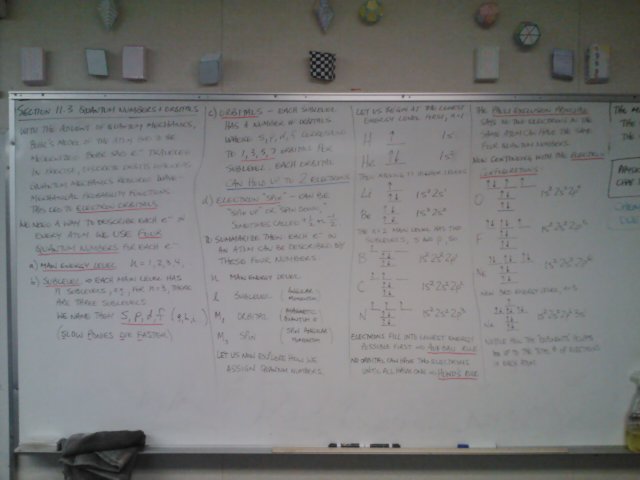 SECTION 11.3 QUANTUM NUMBERS & ORBITALS
WITH THE ADVENT OF QUANTUM MECHANICS,
BOHR'S MODEL OF THE ATOM HAD TO BE
MODERNIZED. BOHR SAID e⁻ TRAVELED
IN PRECISE, DISCRETE ORBITS
QUANTUM MECHANICS REQUIRED WAVE-
MECHANICAL PROBABILITY FUNCTIONS.
THIS LED TO ELECTRON ORBITALS.
WE NEED A WAY TO DESCRIBE EACH e⁻ IN
EVERY ATOM. WE USE FOUR
QUANTUM NUMBERS FOR EACH e⁻
a) MAIN ENERGY LEVEL n = 1, 2, 3, 4,
b) SUBLEVEL → EACH MAIN LEVEL HAS
n SUBLEVELS, FOR n=3, THERE
ARE THREE SUBLEVELS
WE NAME THEM S, P, d, f (g, h, i)
(SLOW PONIES DIE FASTER)
c) ORBITALS - EACH SUBLEVEL
HAS A NUMBER OF ORBITALS
WHERE S, P, d, f CORRESPOND
TO 1, 3, 5, 7 ORBITALS PER
SUBLEVEL. EACH ORBITAL
CAN HOLD UP TO 2 ELECTRONS
d) ELECTRON "SPIN" - CAN BE
"SPIN UP" OR "SPIN DOWN,"
SOMETIMES CALLED +½ or -½
TO SUMMARIZE THEN EACH e⁻ IN
AN ATOM CAN BE DESCRIBED BY
THESE FOUR NUMBERS.
n MAIN ENERGY LEVEL
l SUBLEVEL (ANGULAR MOMENTUM)
ORBITAL (MAGNETIC QUANTUM #)
SPIN (SPIN ANGULAR MOMENTUM)
LET US NOW EXPLORE HOW WE
ASSIGN QUANTUM NUMBERS.
LET US BEGIN AT THE LOWEST
ENERGY LEVEL FIRST, n=1
H ↑ 1s¹
He ↑↓ 1s²
THEN MOVING TO HIGHER LEVELS
Li 1s²2s¹
Be 1s²2s²
THE n=2 MAIN LEVEL HAS TWO
SUBLEVELS, S AND P, SO
B 1s²2s²2p¹
C 1s²2s²2p²
N 1s²2s²2p³
ELECTRONS FILL INTO LOWEST ENERGY
POSSIBLE FIRST → AUFBAU RULE
NO ORBITAL CAN HAVE TWO ELECTRONS
UNTIL ALL HAVE ONE → HUND'S RULE
THE PAULI EXCLUSION PRINCIPLE
SAYS NO TWO ELECTRONS IN THE
SAME ATOM CAN HAVE THE SAME
FOUR QUANTUM NUMBERS.
NOW CONTINUING WITH THE ELECTRON
CONFIGURATIONS
O 1s²2s²2p⁴
F 1s²2s²2p⁵
Ne 1s²2s²2p⁶
NOW 3RD ENERGY LEVEL n=3
Na 1s²2s²2p⁶3s¹
NOTICE ALL THE EXPONENTS ADDED
UP TO THE TOTAL # OF ELECTRONS
IN EACH ATOM.